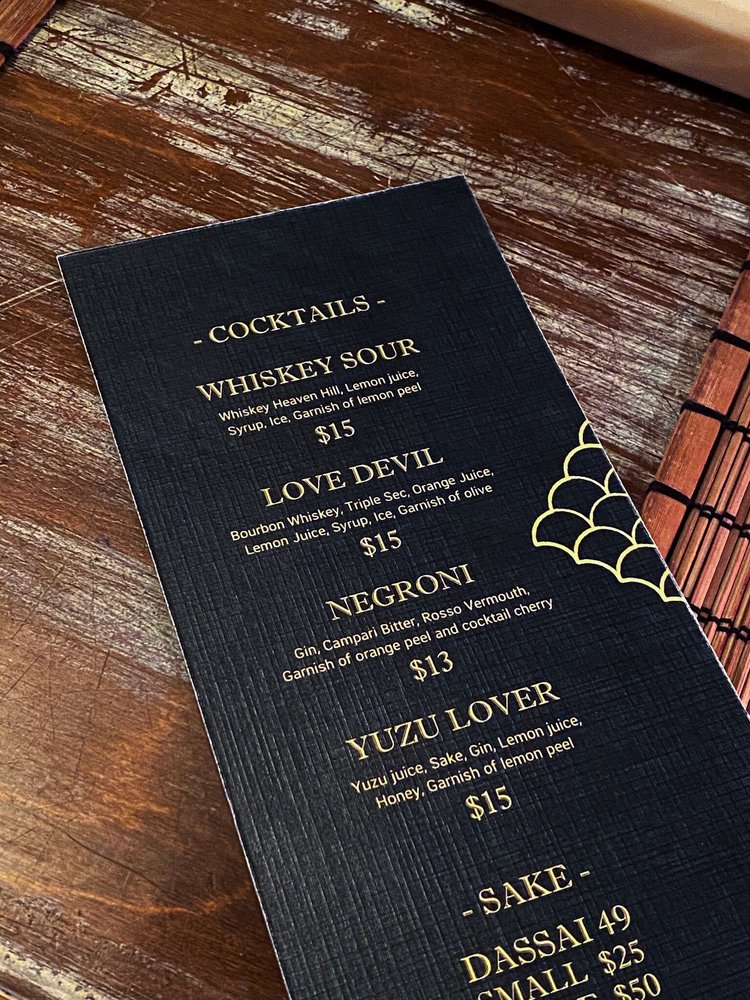 - COCKTAILS -
WHISKEY SOUR
Whiskey Heaven Hill, Lemon juice,
Syrup, Ice, Garnish of lemon peel
$15
LOVE DEVIL
Bourbon Whiskey, Triple Sec, Orange Juice,
Lemon Juice, Syrup, Ice, Garnish of olive
$15
NEGRONI
Gin, Campari Bitter, Rosso Vermouth,
Garnish of orange peel and cocktail cherry
$13
YUZU LOVER
Yuzu juice, Sake, Gin, Lemon juice,
Honey, Garnish of lemon peel
$15
- SAKE -
DASSAI 49
SMALL $25
$50